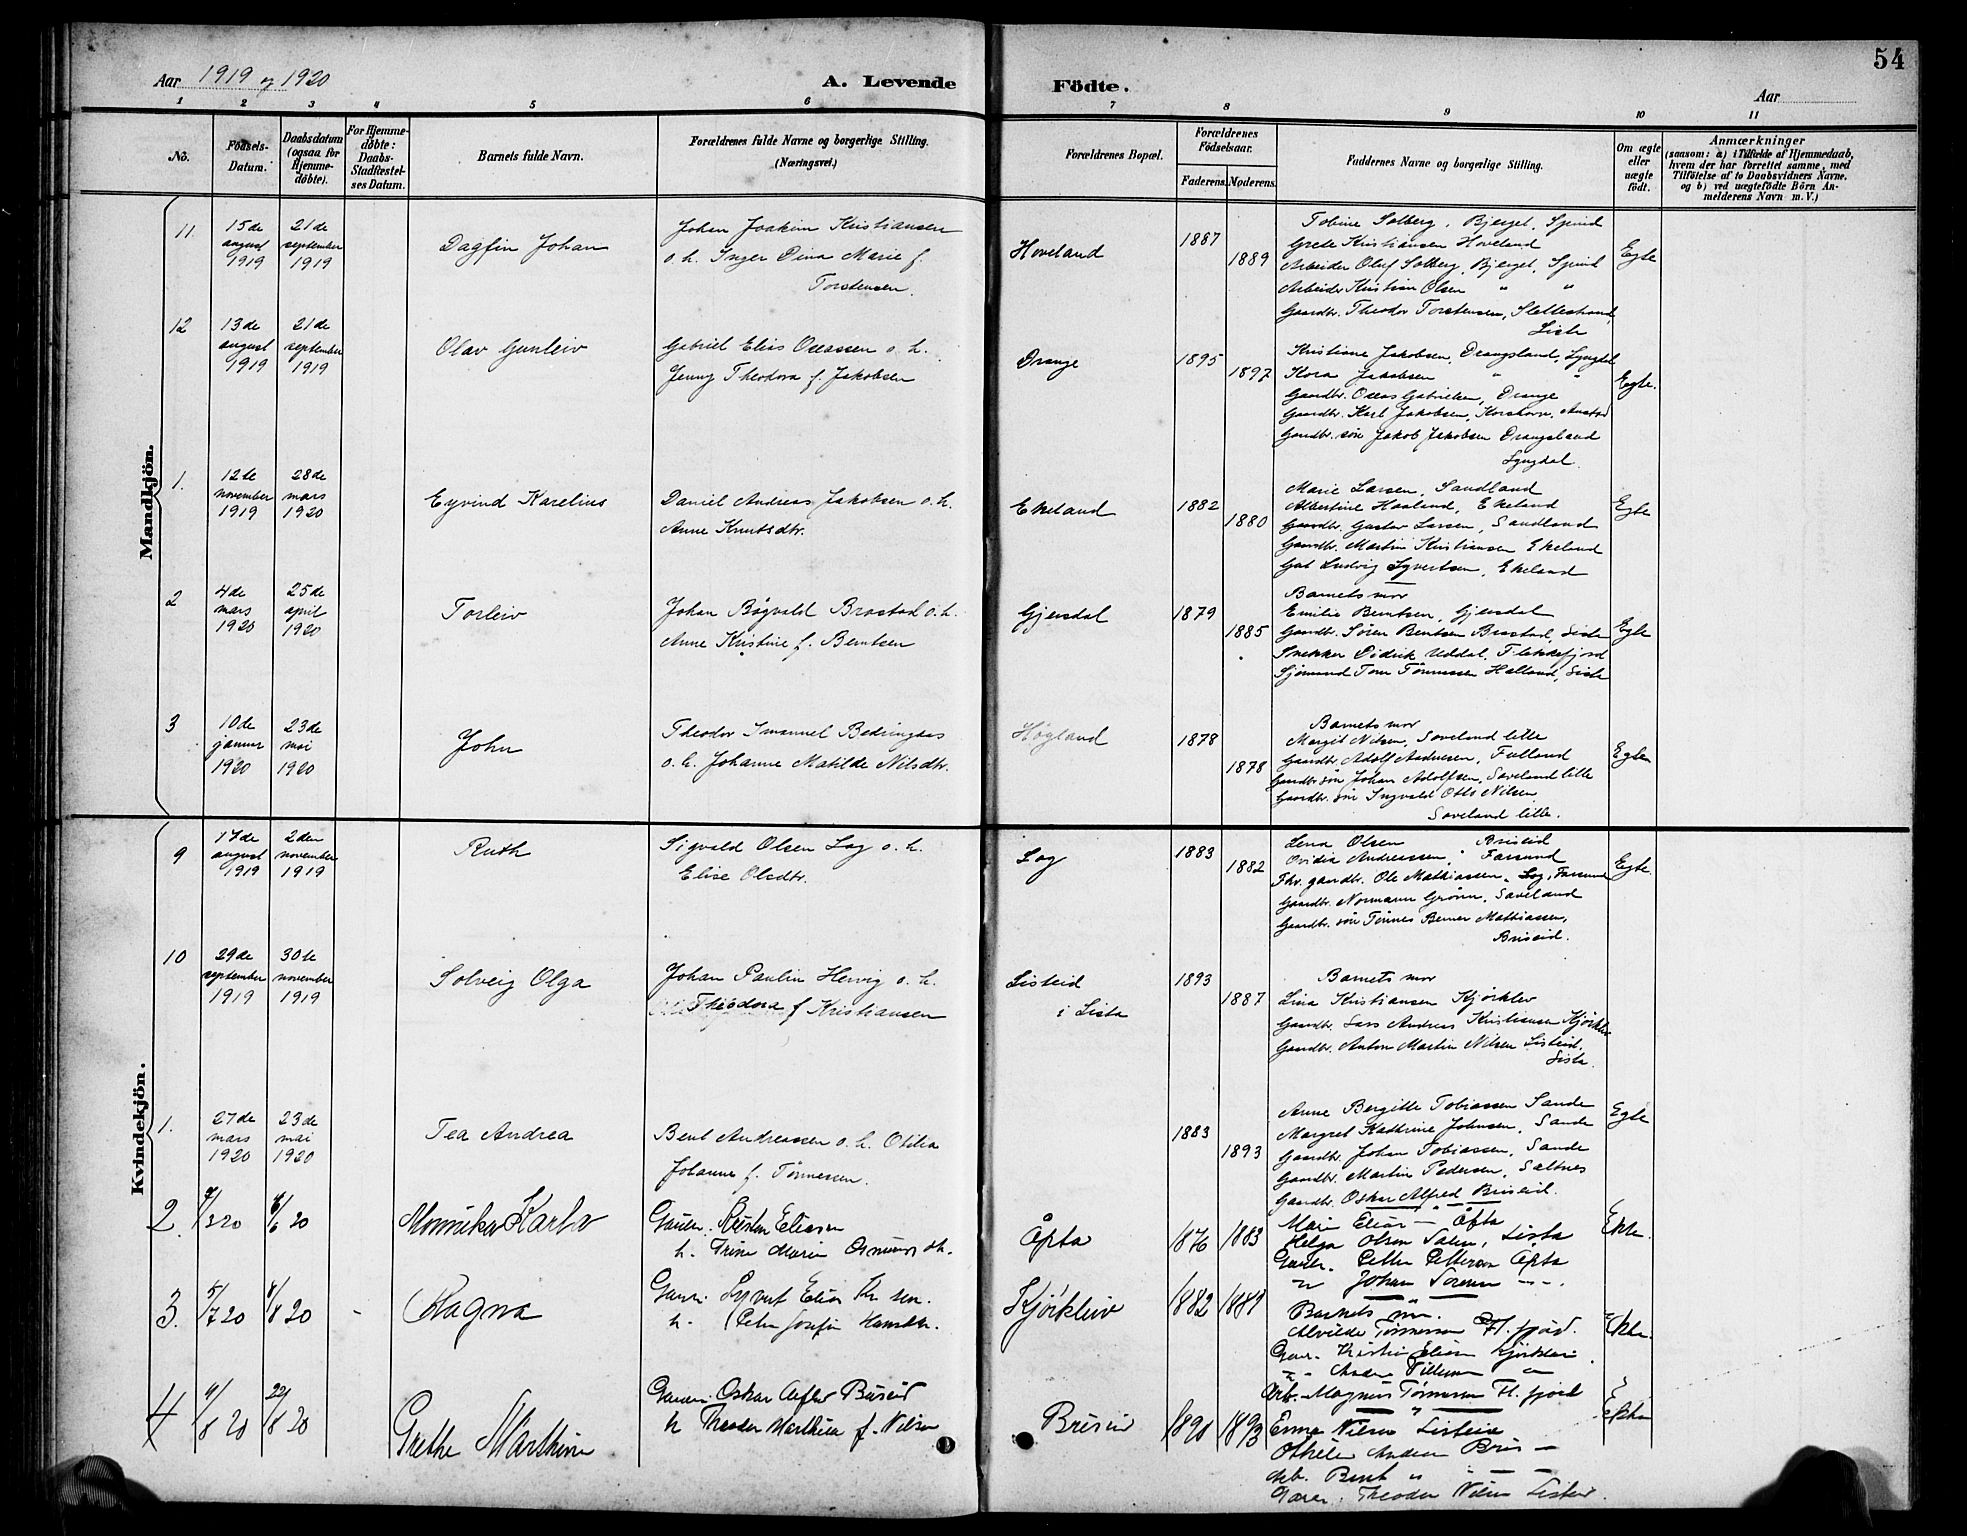 54
Aar 1919 og 1920
A. Levende Födte.
Aar
1 2 3 4 5 6 7 8 9 10 11
No.
Födsels-Datum.
Daabsdatum (ogsaa for Hjemmedöbte).
For Hjemmedöbte: Daabs-Stadfæstelses Datum.
Barnets fulde Navn.
Forældrenes fulde Navne og borgerlige Stilling.
(Næringsvei.)
Forældrenes Bopæl.
Forældrenes Födselsaar.
Faderens. Moderens.
Faddernes Navne og borgerlige Stilling.
Om ægte eller uægte födt.
Anmærkninger
(saasom: a) i Tilfælde af Hjemmedaab,
hvem der har forrettet samme, med
Tilföielse af to Daabsvidners Navne.
og b) ved uægtefödte Börn An-
melderens Navn m. V.)
Mandkjön.
11. 15de august 1919 21de september 1919
Dagfin Johan
Johan Joakim Kristiansen
o. h. Inger Dina Marie f.
Torstensen.
Hoveland
1887 1889
Tobine Solberg, Bjerget, Spind
Grete Kristiansen Hoveland
Arbeider Oluf Solberg, Bjerget, Spind
Arbeider Kristian Olsen " "
Gaardbr. Theodor Torstensen, Slettestrand,
Liste
Egte
12 13de august 1919 21de september 1919
Olav Gunleiv
Gabriel Elias Oseassen o. h.
Jenny Theodora f. Jakobsen
Drange
1895 1897
Kristiane Jakobsen, Drangsland, Lyngdal
Kora Jakobsen " "
Gaardbr. Oseas Gabrielsen, Drange
Gaardbr. Karl Jakobsen, Korshavn, Austad
Gaardbr. søn Jakob Jakobsen Drangsland
Lyngdal.
Egte.
1. 12te november 1919 28de mars 1920
Eyvind Karelius
Daniel Andreas Jakobsen o. h.
Anne Knutsdtr.
Ekeland
1882 1880
Marie Larsen, Sandland
Albertine Haaland, Ekeland
Gaardbr. Gustav Larsen, Sandland
Gaardbr. Martin Kristiansen Ekeland
Gut Ludvig Syvertsen, Ekeland
Egte
2 4de mars 1920 25de april 1920
Torleiv
Johan Røgvald Brastad o. h.
Anne Kristine f. Berntsen
Gjersdal
1879 1885
Barnets mor
Emilie Berntsen, Gjersdal
Gaardbr. Søren Bentsen Brastad, Liste
Snekker Didrik Uddal, Flekkefjord
Sjømand Tom Tønnessen Halland, Lista
Egte
3 10de januar 1920 23de mai 1920
John
Theodor Imanuel Bedringaas
o. h. Johanne Matilde Nilsdtr.
Høyland
1878 1878
Barnets mor
Margit Nilsen, Saveland lille
Gaardbr. Adolf Andresen, Fulland
Gaardbr. søn Johan Adolfsen, Saveland lille
Gaardbr. søn Ingvald Otto Nilsen
Saveland lille.
Egte
Kvindekjön.
9 17de august 1919 2den november 1919
Ruth
Sigvald Olsen Log o. h.
Elise Olsdtr.
Log
1883 1882
Lena Olsen Briseid
Ovidia Andreassen, Farsund
Fhv. gaardbr. Ole Mathiassen, Log, Farsund
Gaardbr. Normann Grönn, Saveland
Gaardbr. søn Tønnes Berner Mathiassen,
Briseid.
Egte.
10 29de september 1919 30te november 1919
Solveig Olga
Johan Paulin Hervig o. h.
Theodora f Kristiansen
Listeid
i Lista
1893 1887
Barnets mor
Lina Kristiansen Kjørklev
Gaardbr. Lars Andreas Kristiansen Kjørklev
Gaardbr. Anton Martin Nilsen Listeid,
Lista
1. 27de mars 1920 23de mai 1920
Tea Andrea
Bent Andreassen o. h. Otilia
Johanne f. Tønnessen.
1883 1893
Anne Bergitte Tobiassen Sande
Margret Kathrine Johnsen, Sande
Gaardbr. Johan Tobiassen, Sande
Gaardbr. Martin Pedersen, Saltnes
Gaardbr. Oskar Alfred Briseid.
Egte
2. 9/3 20 6/6 20
Monnika Karla
Kristen Eliasen
h. Trine Marie
Åpta
1876 1883
Marie Elias — Åpta
Helga Olsen Lista
Petter Pettersen Åpta
" Johan Soren — " —.
Ekte.
3. 5/7 20 8/8 20 -
Magna
Syvert Elias Kr. sen.
h. Josefin Hansdtr.
Kjørkleiv
1882 1881
Barnets mor.
Alvilde Tønnessen Fl. fjord.
Kristin Eliasen Kjørkleiv
Arb. Magnus Tønnessen Fl. fjord
Ekte.
4 4/8 20 22/8 20
Grethe Marthine
Oskar Briseid
h Theoder Marthea f. Nilsen
Briseid
1890 1893
Emma Nilsen Listeid
Andrea Bris —
Arb. Bent " — —
Theodor Nilsen Listeid.
Ekte